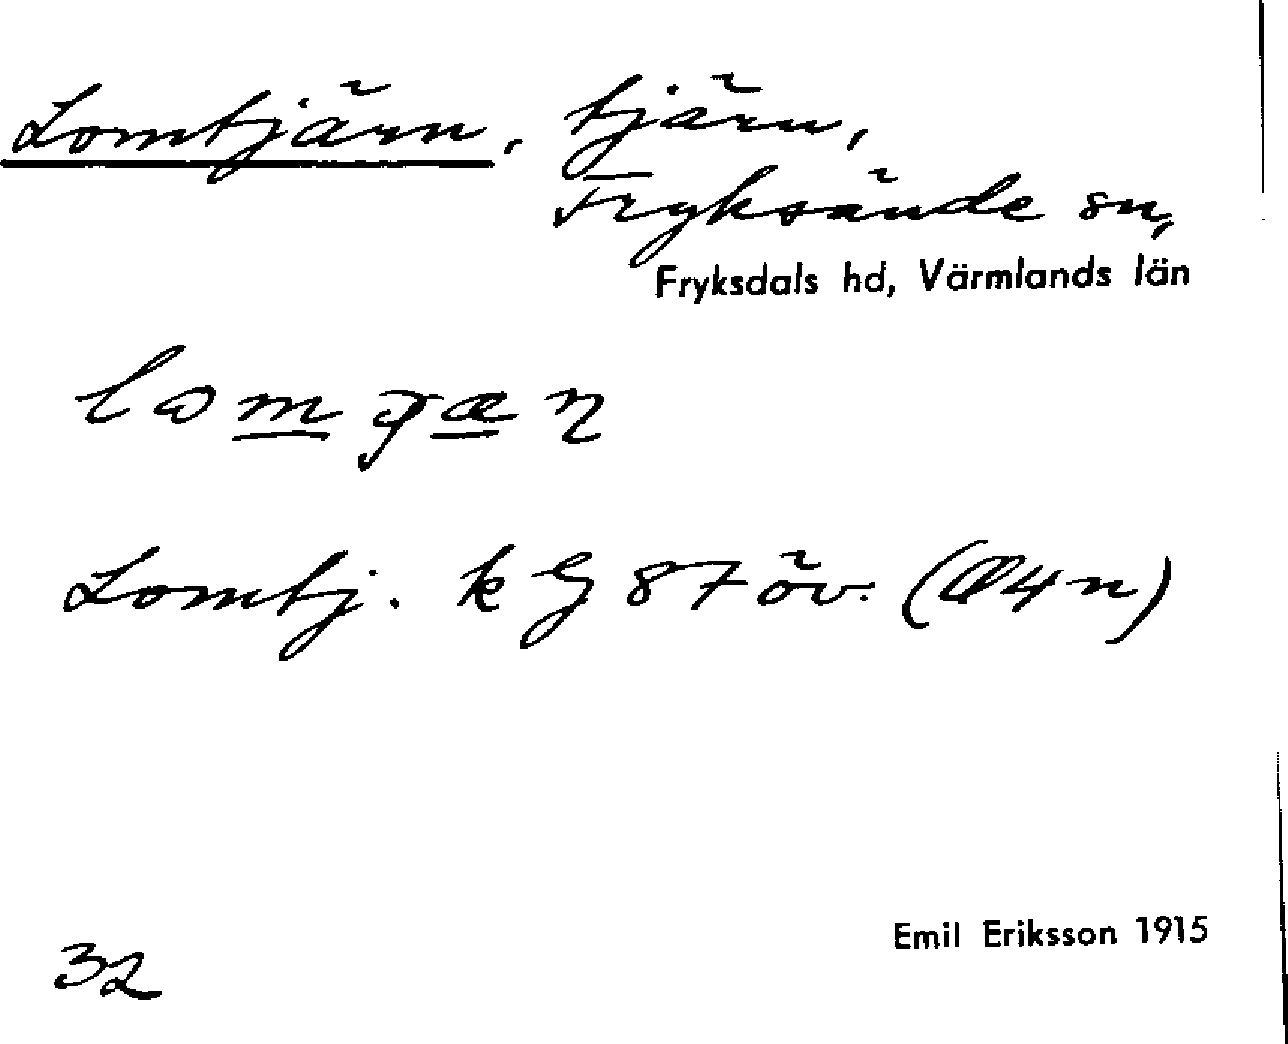 Lomtjärn, tjärn,
Fryksände sn,
Fryksdals hd, Värmlands län
Lomtj. k G 87 öv. (Ö4n)
Emil Eriksson 1915
32